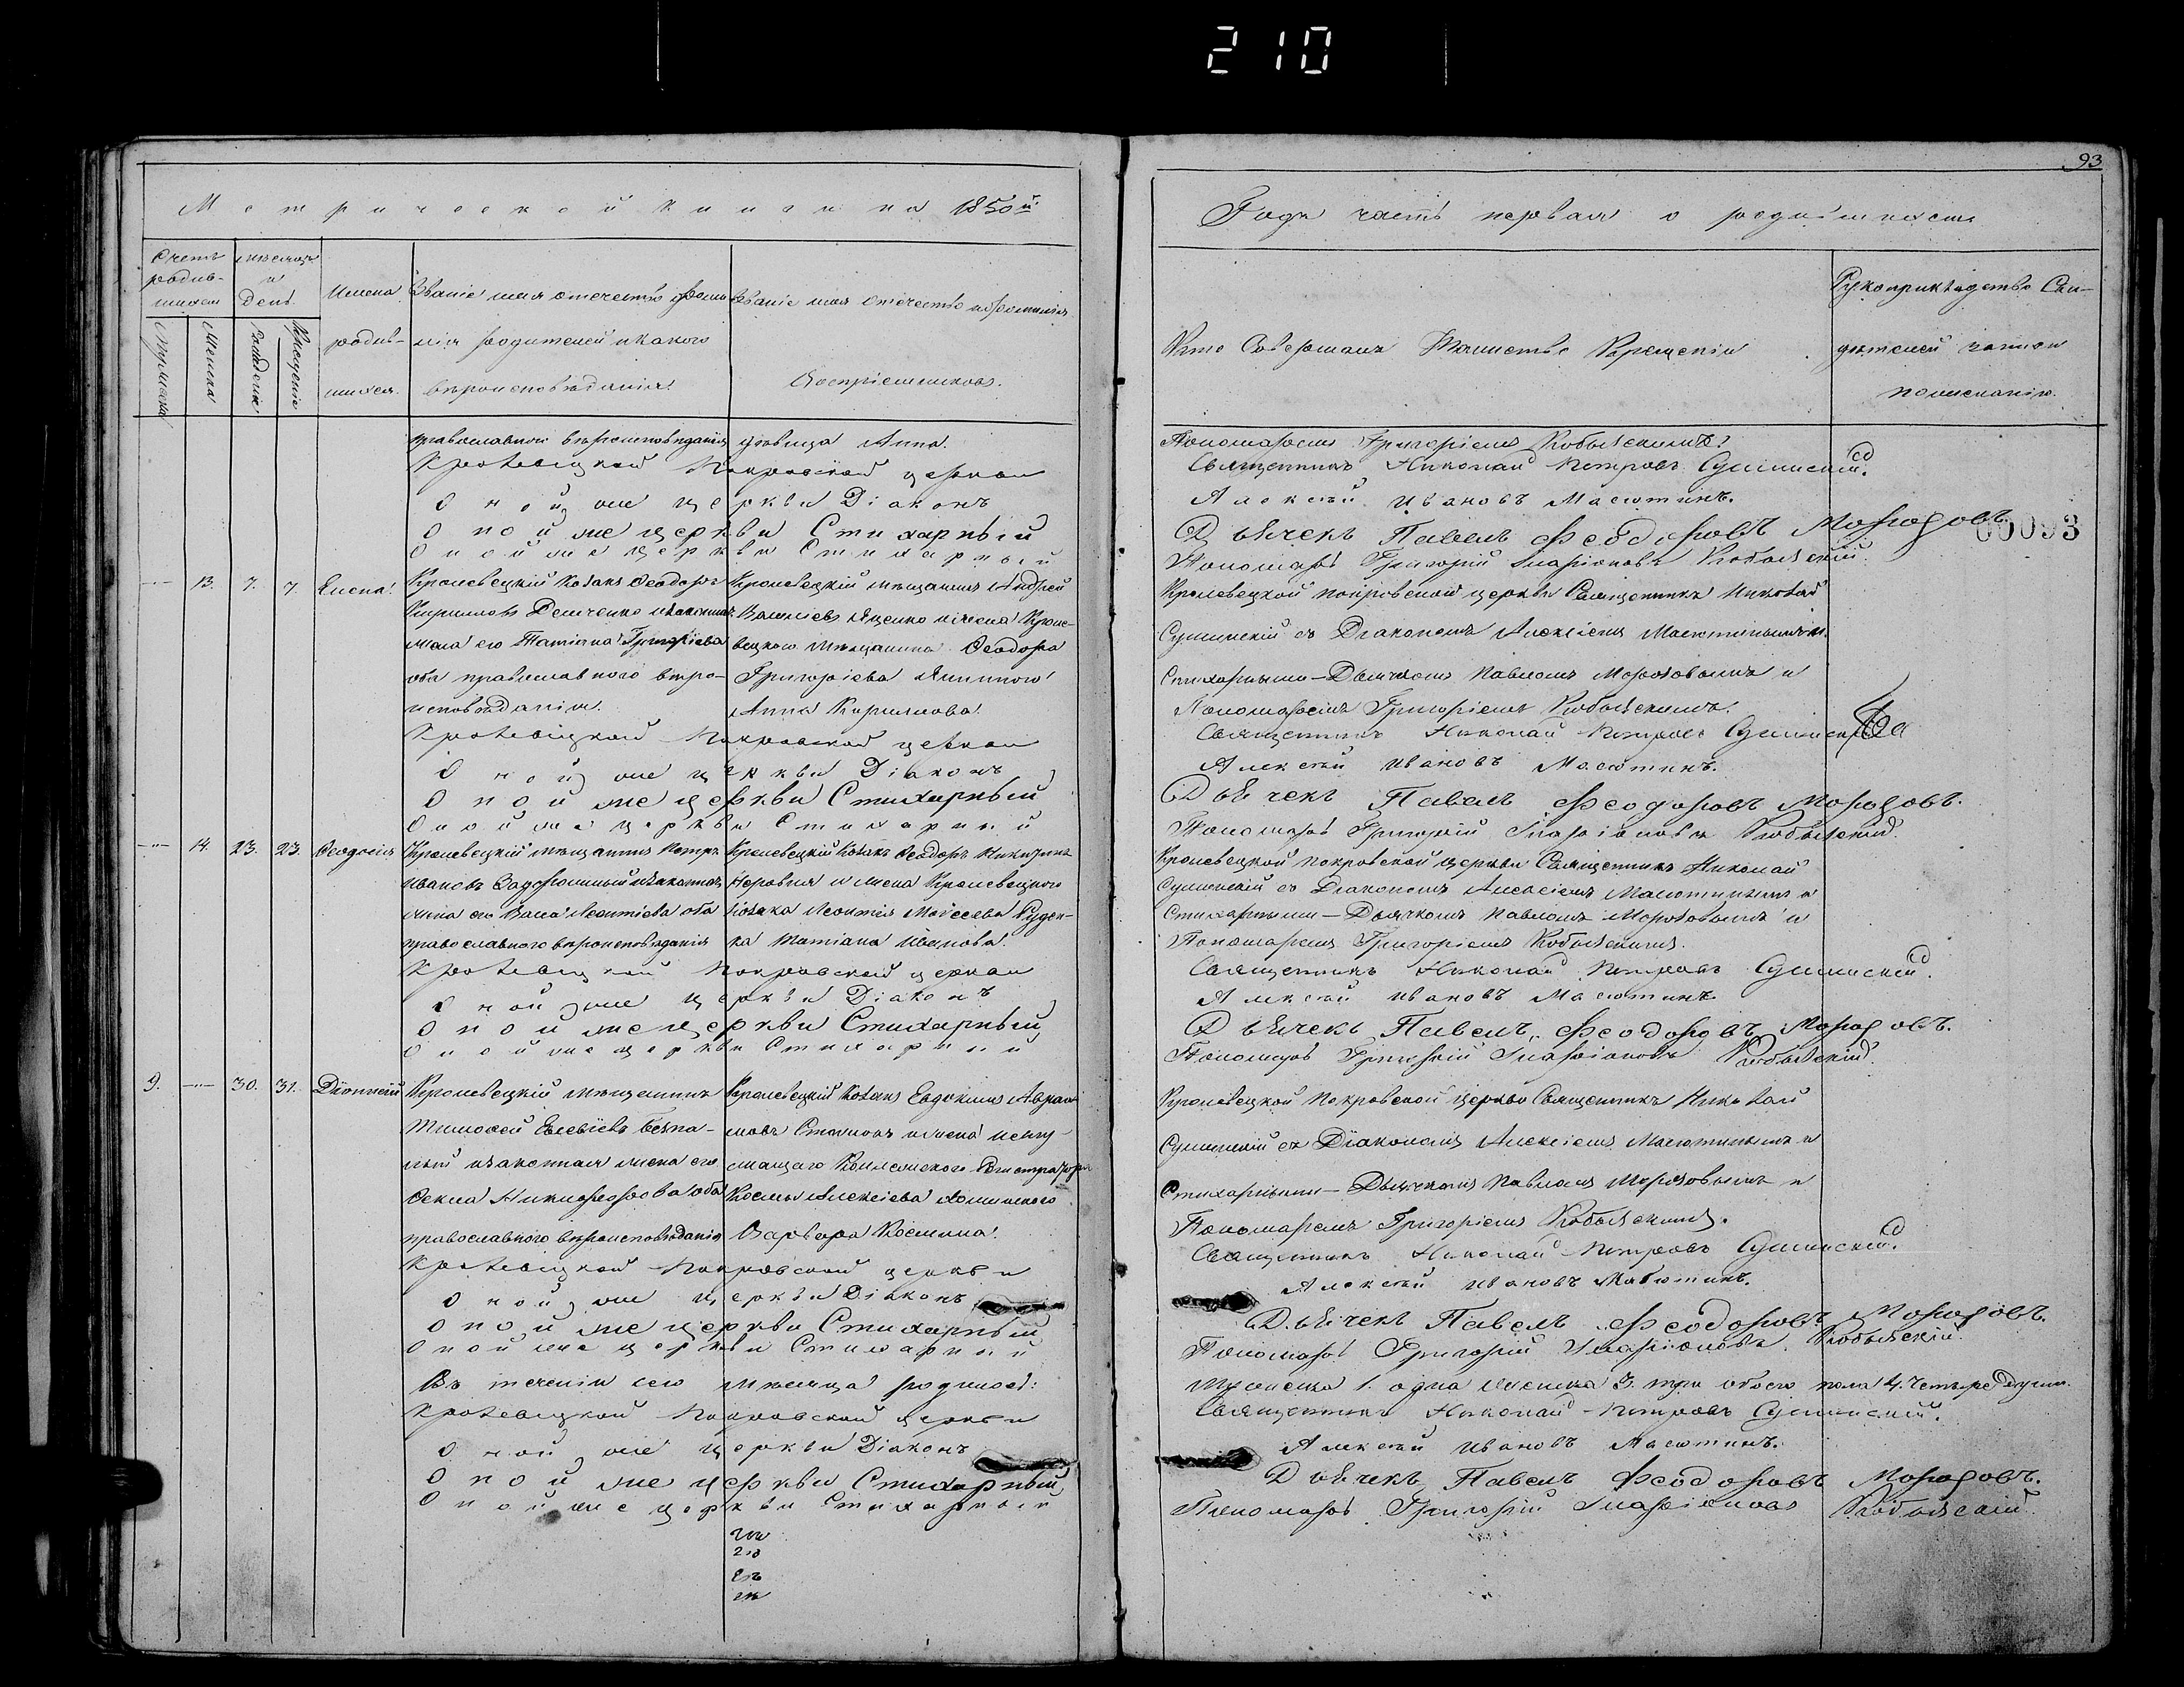 210
93
Метрической книги на 1850й
Года часть первая о родившихся
Счетъ родив-шихся
Мужеска
Женска
Мѣсяцъ и день
Рожденія
Крещенія
Имена родив-шихся.
Званіе имя отечество и фами-
лія родителей и какого
вѣроисповѣданія.
Званіе имя отечество и фамилія
Воспріемниковъ.
Кто Совершалъ Таинство Крещенія
Рукоприкладство Сви-
дѣтелей записи
по желанію.
православного вѣроисповѣданія
дѣвица Анна.
Пономаремъ Григоріемъ Кобылскимъ.
Кролевецкой Покровской церкви
Священникъ Николай Петровъ Сушинскій.
Оной же церкви Діаконъ
Алексѣй Ивановъ Масютинъ.
Оной же церкви Стихарный
Дьячекъ Павелъ Феодоровъ Морозовъ.
00093
Оной же церкви Стихарный
Пономарь Григорій Иларіоновъ Кобылскій.
13. 7. 7. Елена.
Кролевецкій Козакъ Феодоръ
Кириловъ Демченко и законная
жена его Татіяна Григоріева
оба православного вѣро-
исповѣданія.
Кролевецкій мѣщанинъ Андрей
Васильевъ Яценко и жена Кроле-
вецкого мѣщанина Феодора
Григоріева
Анна Кирилова.
Кролевецкой Покровской церкви Священникъ Николай
Сушинскій съ Діакономъ Алексіемъ Масютинымъ и
Стихарными - Дьячкомъ Павломъ Морозовымъ и
Пономаремъ Григоріемъ Кобылскимъ.
Кролевецкой Покровской церкви
Священникъ Николай Петровъ Сушинскій
Оной же церкви Діаконъ
Алексѣй Ивановъ Масютинъ.
Оной же церкви Стихарный
Дьячекъ Павелъ Феодоровъ Морозовъ.
Оной же церкви Стихарный
Пономарь Григорій Иларіоновъ Кобылскій.
14. 23. 23. Феодосія
Кролевецкій мѣщанинъ Петръ
Ивановъ и законная
жена его Леонтіева оба
православного вѣроисповѣданія
Кролевецкій Козакъ Феодоръ Никитинъ
и жена Кролевецкого
Козака Леонтія Моісеева Руден-
ка Татіана Иванова.
Кролевецкой Покровской церкви Священникъ Николай
Сушинскій съ Діакономъ Алексіемъ Масютинымъ и
Стихарными - Дьячкомъ Павломъ Морозовымъ и
Пономаремъ Григоріемъ Кобылскимъ.
Кролевецкой Покровской церкви
Священникъ Николай Петровъ Сушинскій.
Оной же церкви Діаконъ
Алексѣй Ивановъ Масютинъ.
Оной же церкви Стихарный
Дьячекъ Павелъ Феодоровъ Морозовъ.
Оной же церкви Стихарный
Пономарь Григорій Иларіоновъ Кобылскій.
9. 30. 31. Діонисій
Кролевецкій мѣщанинъ
Тимофей Евсевіевъ Безпа-
лый и законная жена его
Фекла Никифорова оба
православного вѣроисповѣданія
Кролевецкій Козакъ Евдокимъ Аврам-
мовъ и жена
Колежского Регистратора
Космы Алексіева
Варвара Космина.
Кролевецкой Покровской церкви Священникъ Николай
Сушинскій съ Діакономъ Алексіемъ Масютинымъ и
Стихарными - Дьячкомъ Павломъ Морозовымъ и
Пономаремъ Григоріемъ Кобылскимъ.
Кролевецкой Покровской церкви
Священникъ Николай Петровъ Сушинскій.
Оной же церкви Діаконъ
Алексѣй Ивановъ Масютинъ.
Оной же церкви Стихарный
Дьячекъ Павелъ Феодоровъ Морозовъ.
Оной же церкви Стихарный
Пономарь Григорій Иларіоновъ Кобылскій.
Въ теченіи сего мѣсяца родилось:
Мужеска 1. одна Женска 3. три обоего пола 4. четыре души.
Кролевецкой Покровской церкви
Священникъ Николай Петровъ Сушинскій.
Оной же церкви Діаконъ
Алексѣй Ивановъ Масютинъ.
Оной же церкви Стихарный
Дьячекъ Павелъ Феодоровъ Морозовъ.
Оной же церкви Стихарный
Пономарь Григорій Иларіоновъ Кобылскій.